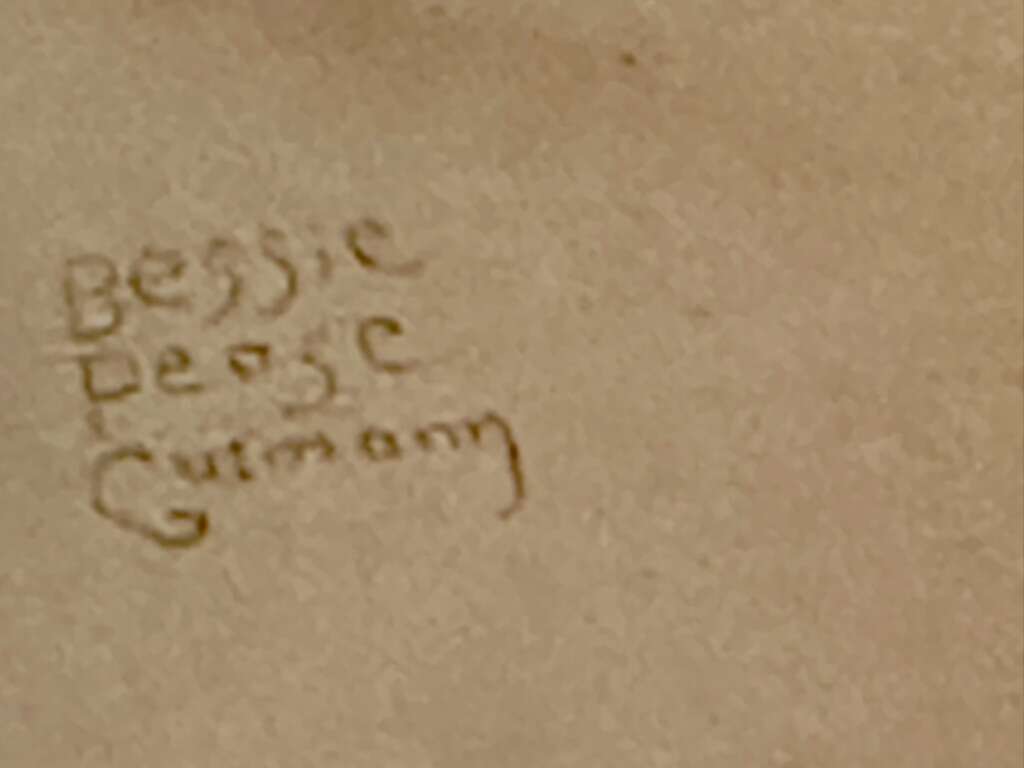 Bessie
Pease
Gutmann